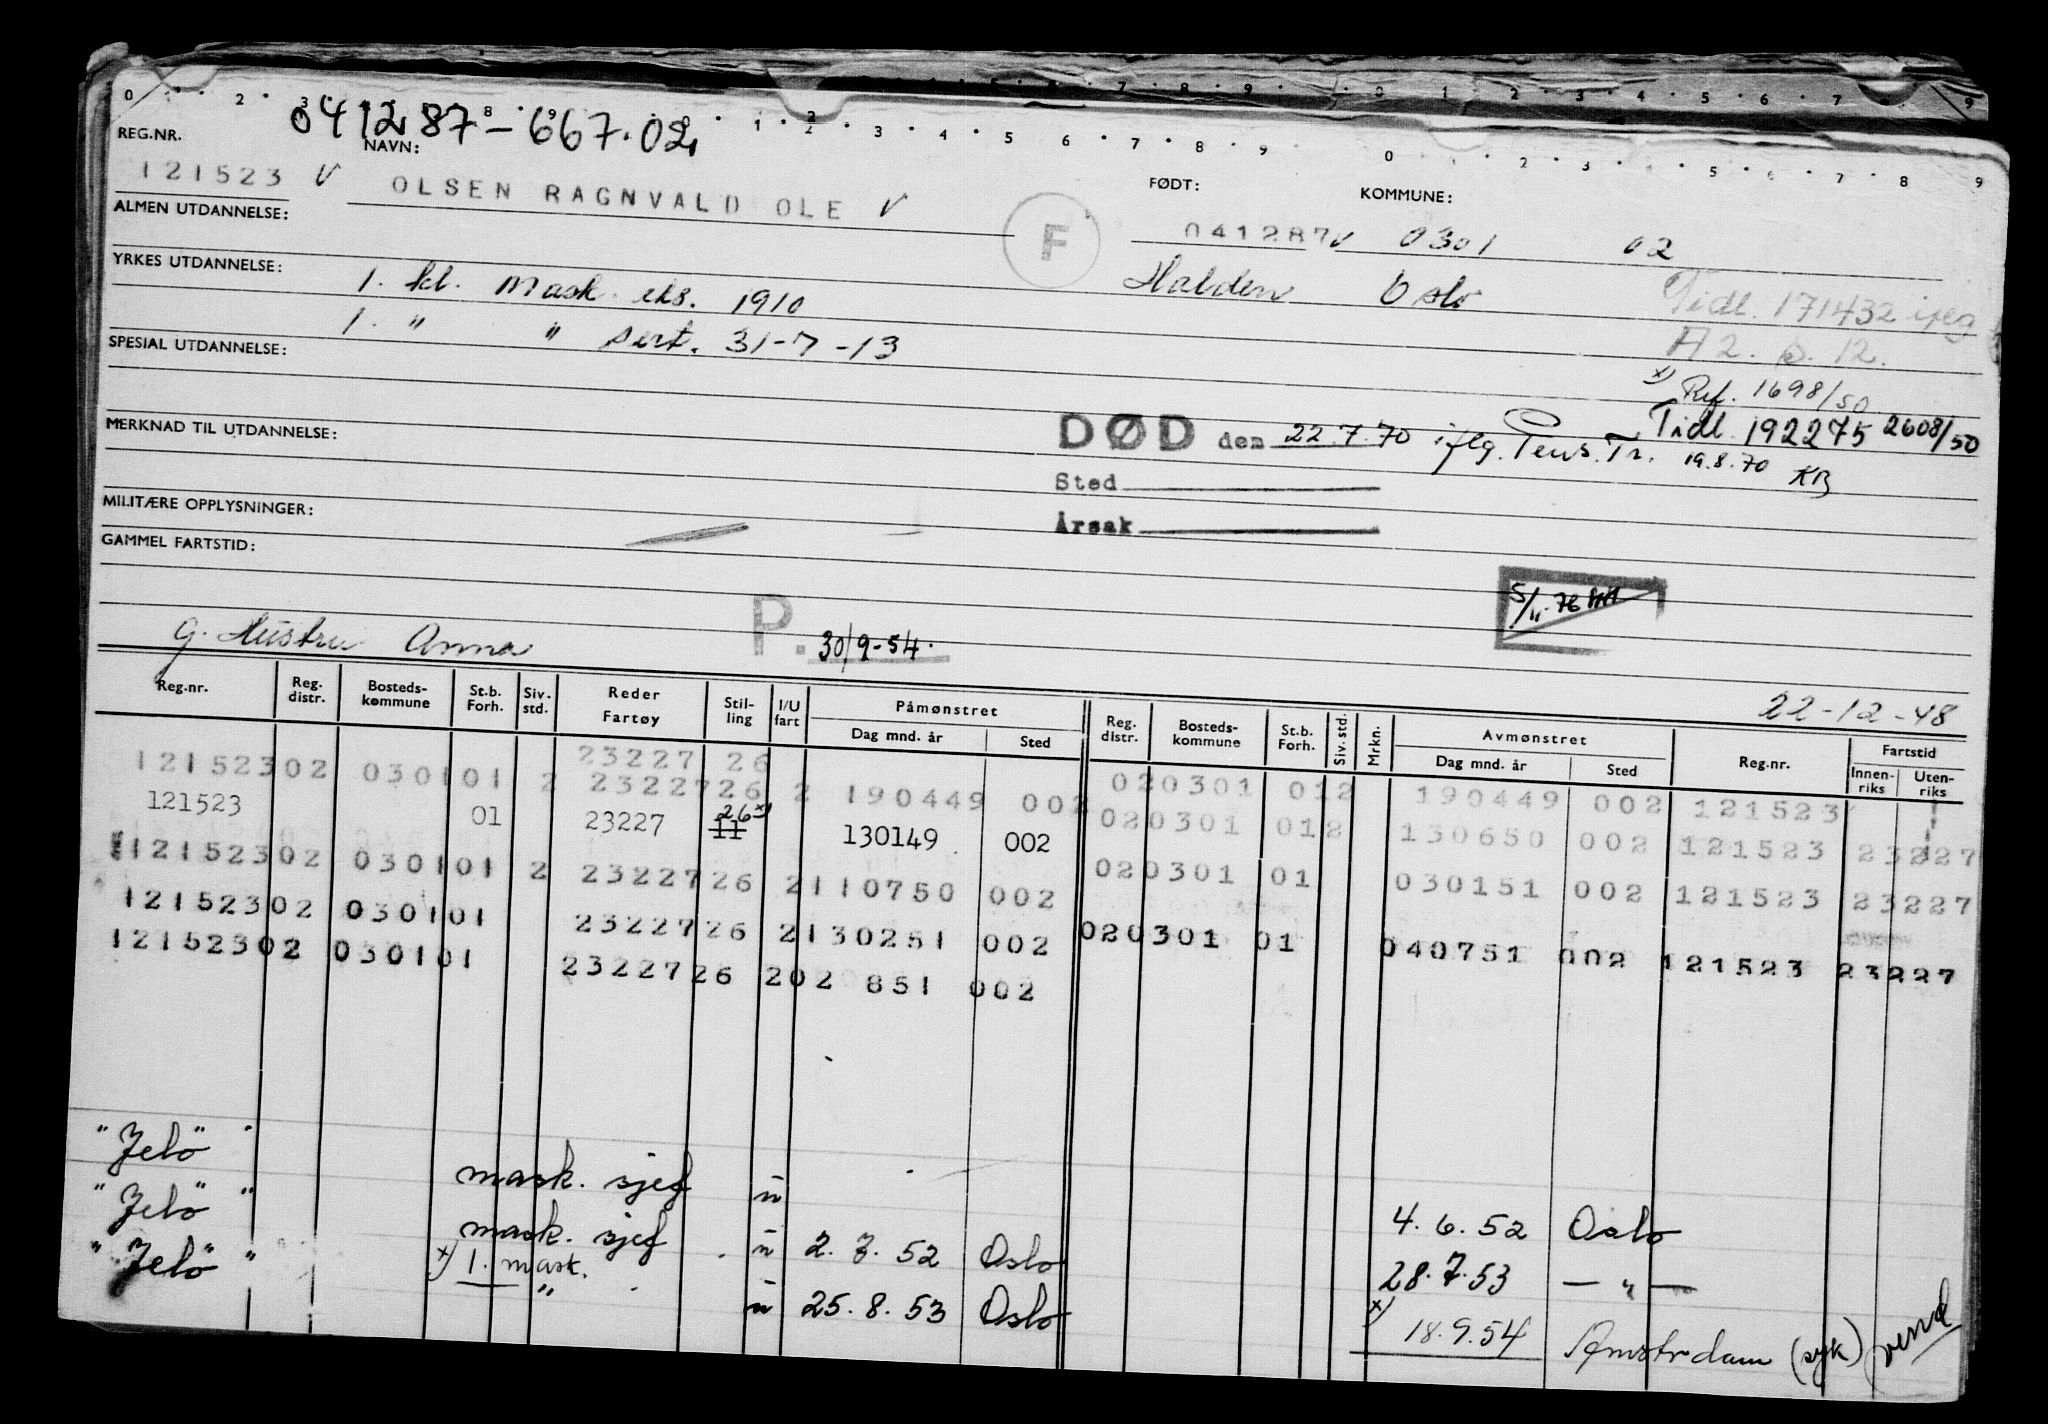 041287-667.02
REG.NR. NAVN: FØDT: KOMMUNE:
121523 V OLSEN RAGNVALD OLE V F 041287 V 0301 02
ALMEN UTDANNELSE: Halden Oslo
YRKES UTDANNELSE: 1. kl. Mask. eks. 1910
Tidl. 171432 iflg
1. " " sert. 31-7-13
A2. s. 12.
SPESIAL UTDANNELSE:
x) Ref. 1698/50
Tidl. 192275 2608/50
MERKNAD TIL UTDANNELSE:
DØD den 22.7.70 iflg. Pens. Tr. 19.8.70 KB
Sted
MILITÆRE OPPLYSNINGER:
Årsak
GAMMEL FARTSTID:
5/11-76
g. Hustru Anna P. 30/9-54.
22-12-48
Reg.nr. Reg. distr. Bosteds-kommune St.b. Forh. Siv. std. Reder Fartøy Stil-ling I/U fart Påmønstret Dag mnd. år Sted Reg. distr. Bosteds-kommune St.b. Forh. Siv.std. Mrkn. Avmønstret Dag mnd. år Sted Reg.nr. Fartstid Innen-riks Uten-riks
23227 26
121523 02 0301 01 2 23227 26 2 190449 002 02 0301 01 2 190449 002 121523
121523 01 23227 11 26 x) 130149 002 02 0301 01 2 130650 002 121523 23227
121523 02 0301 01 2 23227 26 2 110750 002 02 0301 01 030151 002 121523 23227
121523 02 0301 01 23227 26 2 130251 002 02 0301 01 040751 002 121523 23227
121523 02 0301 01 23227 26 2 02 851 002
"Jelö" mask. sjef u 4.6.52 Oslo
"Jelö" mask. sjef u 2.7.52 Oslo 28.7.53 — " —
"Jelö" x) 1. mask. " u 25.8.53 Oslo x) 18.9.54 Amstrdam (syk) vend